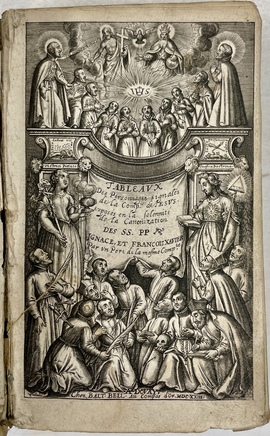 IHS
TABLEAUX
Des Personnages signalés
de la Compᵉ de IESVS.
exposés en la solennité
de la Canonization
DES SS. PP
IGNACE, ET FRANÇOIS XAVIER
Par vn Pere de la mesme Compᵉ
A DOVAY,
Chez BALT. BELL. Au Compas d'or. MDCXXIII.